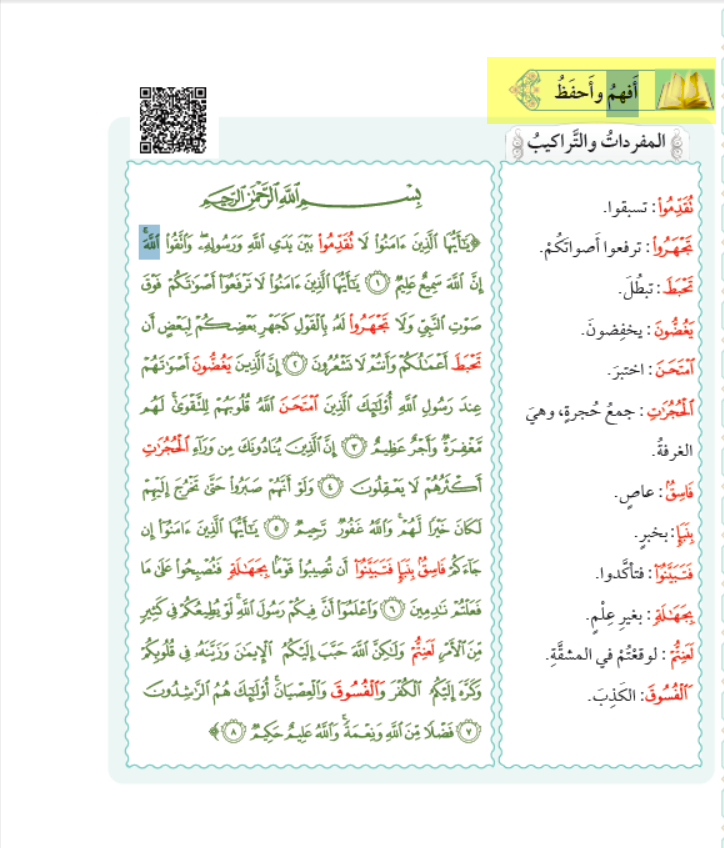 أَفهمُ وأَحفَظُ
المفرداتُ والتَّراكيبُ
نُقَدِّمُوا۟: تسبقوا.
تَجْهَرُوا۟: ترفعوا أَصواتَكُمْ.
تَحْبَطَ: تبطُلَ.
يَغُضُّونَ: يخفِضونَ.
ٱمْتَحَنَ: اختبرَ.
ٱلْحُجُرَٰتِ: جمعُ حُجرةٍ، وهيَ
الغرفةُ.
فَاسِقٌۢ: عاصٍ.
بِنَبَإٍ: بخبرٍ.
فَتَبَيَّنُوٓا۟: فتأكَّدوا.
بِجَهَٰلَةٍ: بغيرِ عِلْمٍ.
لَعَنِتُّمْ: لوقعْتُمْ في المشقَّةِ.
ٱلْفُسُوقَ: الكَذِبَ.
بِسْمِ ٱللَّهِ ٱلرَّحْمَٰنِ ٱلرَّحِيمِ
﴿يَٰٓأَيُّهَا ٱلَّذِينَ ءَامَنُوا۟ لَا تُقَدِّمُوا۟ بَيْنَ يَدَىِ ٱللَّهِ وَرَسُولِهِۦ ۖ وَٱتَّقُوا۟ ٱللَّهَ ۚ
إِنَّ ٱللَّهَ سَمِيعٌ عَلِيمٌ ﴿١﴾ يَٰٓأَيُّهَا ٱلَّذِينَ ءَامَنُوا۟ لَا تَرْفَعُوٓا۟ أَصْوَٰتَكُمْ فَوْقَ
صَوْتِ ٱلنَّبِىِّ وَلَا تَجْهَرُوا۟ لَهُۥ بِٱلْقَوْلِ كَجَهْرِ بَعْضِكُمْ لِبَعْضٍ أَن
تَحْبَطَ أَعْمَٰلُكُمْ وَأَنتُمْ لَا تَشْعُرُونَ ﴿٢﴾ إِنَّ ٱلَّذِينَ يَغُضُّونَ أَصْوَٰتَهُمْ
عِندَ رَسُولِ ٱللَّهِ أُو۟لَٰٓئِكَ ٱلَّذِينَ ٱمْتَحَنَ ٱللَّهُ قُلُوبَهُمْ لِلتَّقْوَىٰ ۚ لَهُم
مَّغْفِرَةٌ وَأَجْرٌ عَظِيمٌ ﴿٣﴾ إِنَّ ٱلَّذِينَ يُنَادُونَكَ مِن وَرَآءِ ٱلْحُجُرَٰتِ
أَكْثَرُهُمْ لَا يَعْقِلُونَ ﴿٤﴾ وَلَوْ أَنَّهُمْ صَبَرُوا۟ حَتَّىٰ تَخْرُجَ إِلَيْهِمْ
لَكَانَ خَيْرًا لَّهُمْ ۚ وَٱللَّهُ غَفُورٌ رَّحِيمٌ ﴿٥﴾ يَٰٓأَيُّهَا ٱلَّذِينَ ءَامَنُوٓا۟ إِن
جَآءَكُمْ فَاسِقٌۢ بِنَبَإٍ فَتَبَيَّنُوٓا۟ أَن تُصِيبُوا۟ قَوْمًۢا بِجَهَٰلَةٍ فَتُصْبِحُوا۟ عَلَىٰ مَا
فَعَلْتُمْ نَٰدِمِينَ ﴿٦﴾ وَٱعْلَمُوٓا۟ أَنَّ فِيكُمْ رَسُولَ ٱللَّهِ ۚ لَوْ يُطِيعُكُمْ فِى كَثِيرٍ
مِّنَ ٱلْأَمْرِ لَعَنِتُّمْ وَلَٰكِنَّ ٱللَّهَ حَبَّبَ إِلَيْكُمُ ٱلْإِيمَٰنَ وَزَيَّنَهُۥ فِى قُلُوبِكُمْ
وَكَرَّهَ إِلَيْكُمُ ٱلْكُفْرَ وَٱلْفُسُوقَ وَٱلْعِصْيَانَ ۚ أُو۟لَٰٓئِكَ هُمُ ٱلرَّٰشِدُونَ
﴿٧﴾ فَضْلًا مِّنَ ٱللَّهِ وَنِعْمَةً ۚ وَٱللَّهُ عَلِيمٌ حَكِيمٌ ﴿٨﴾﴾